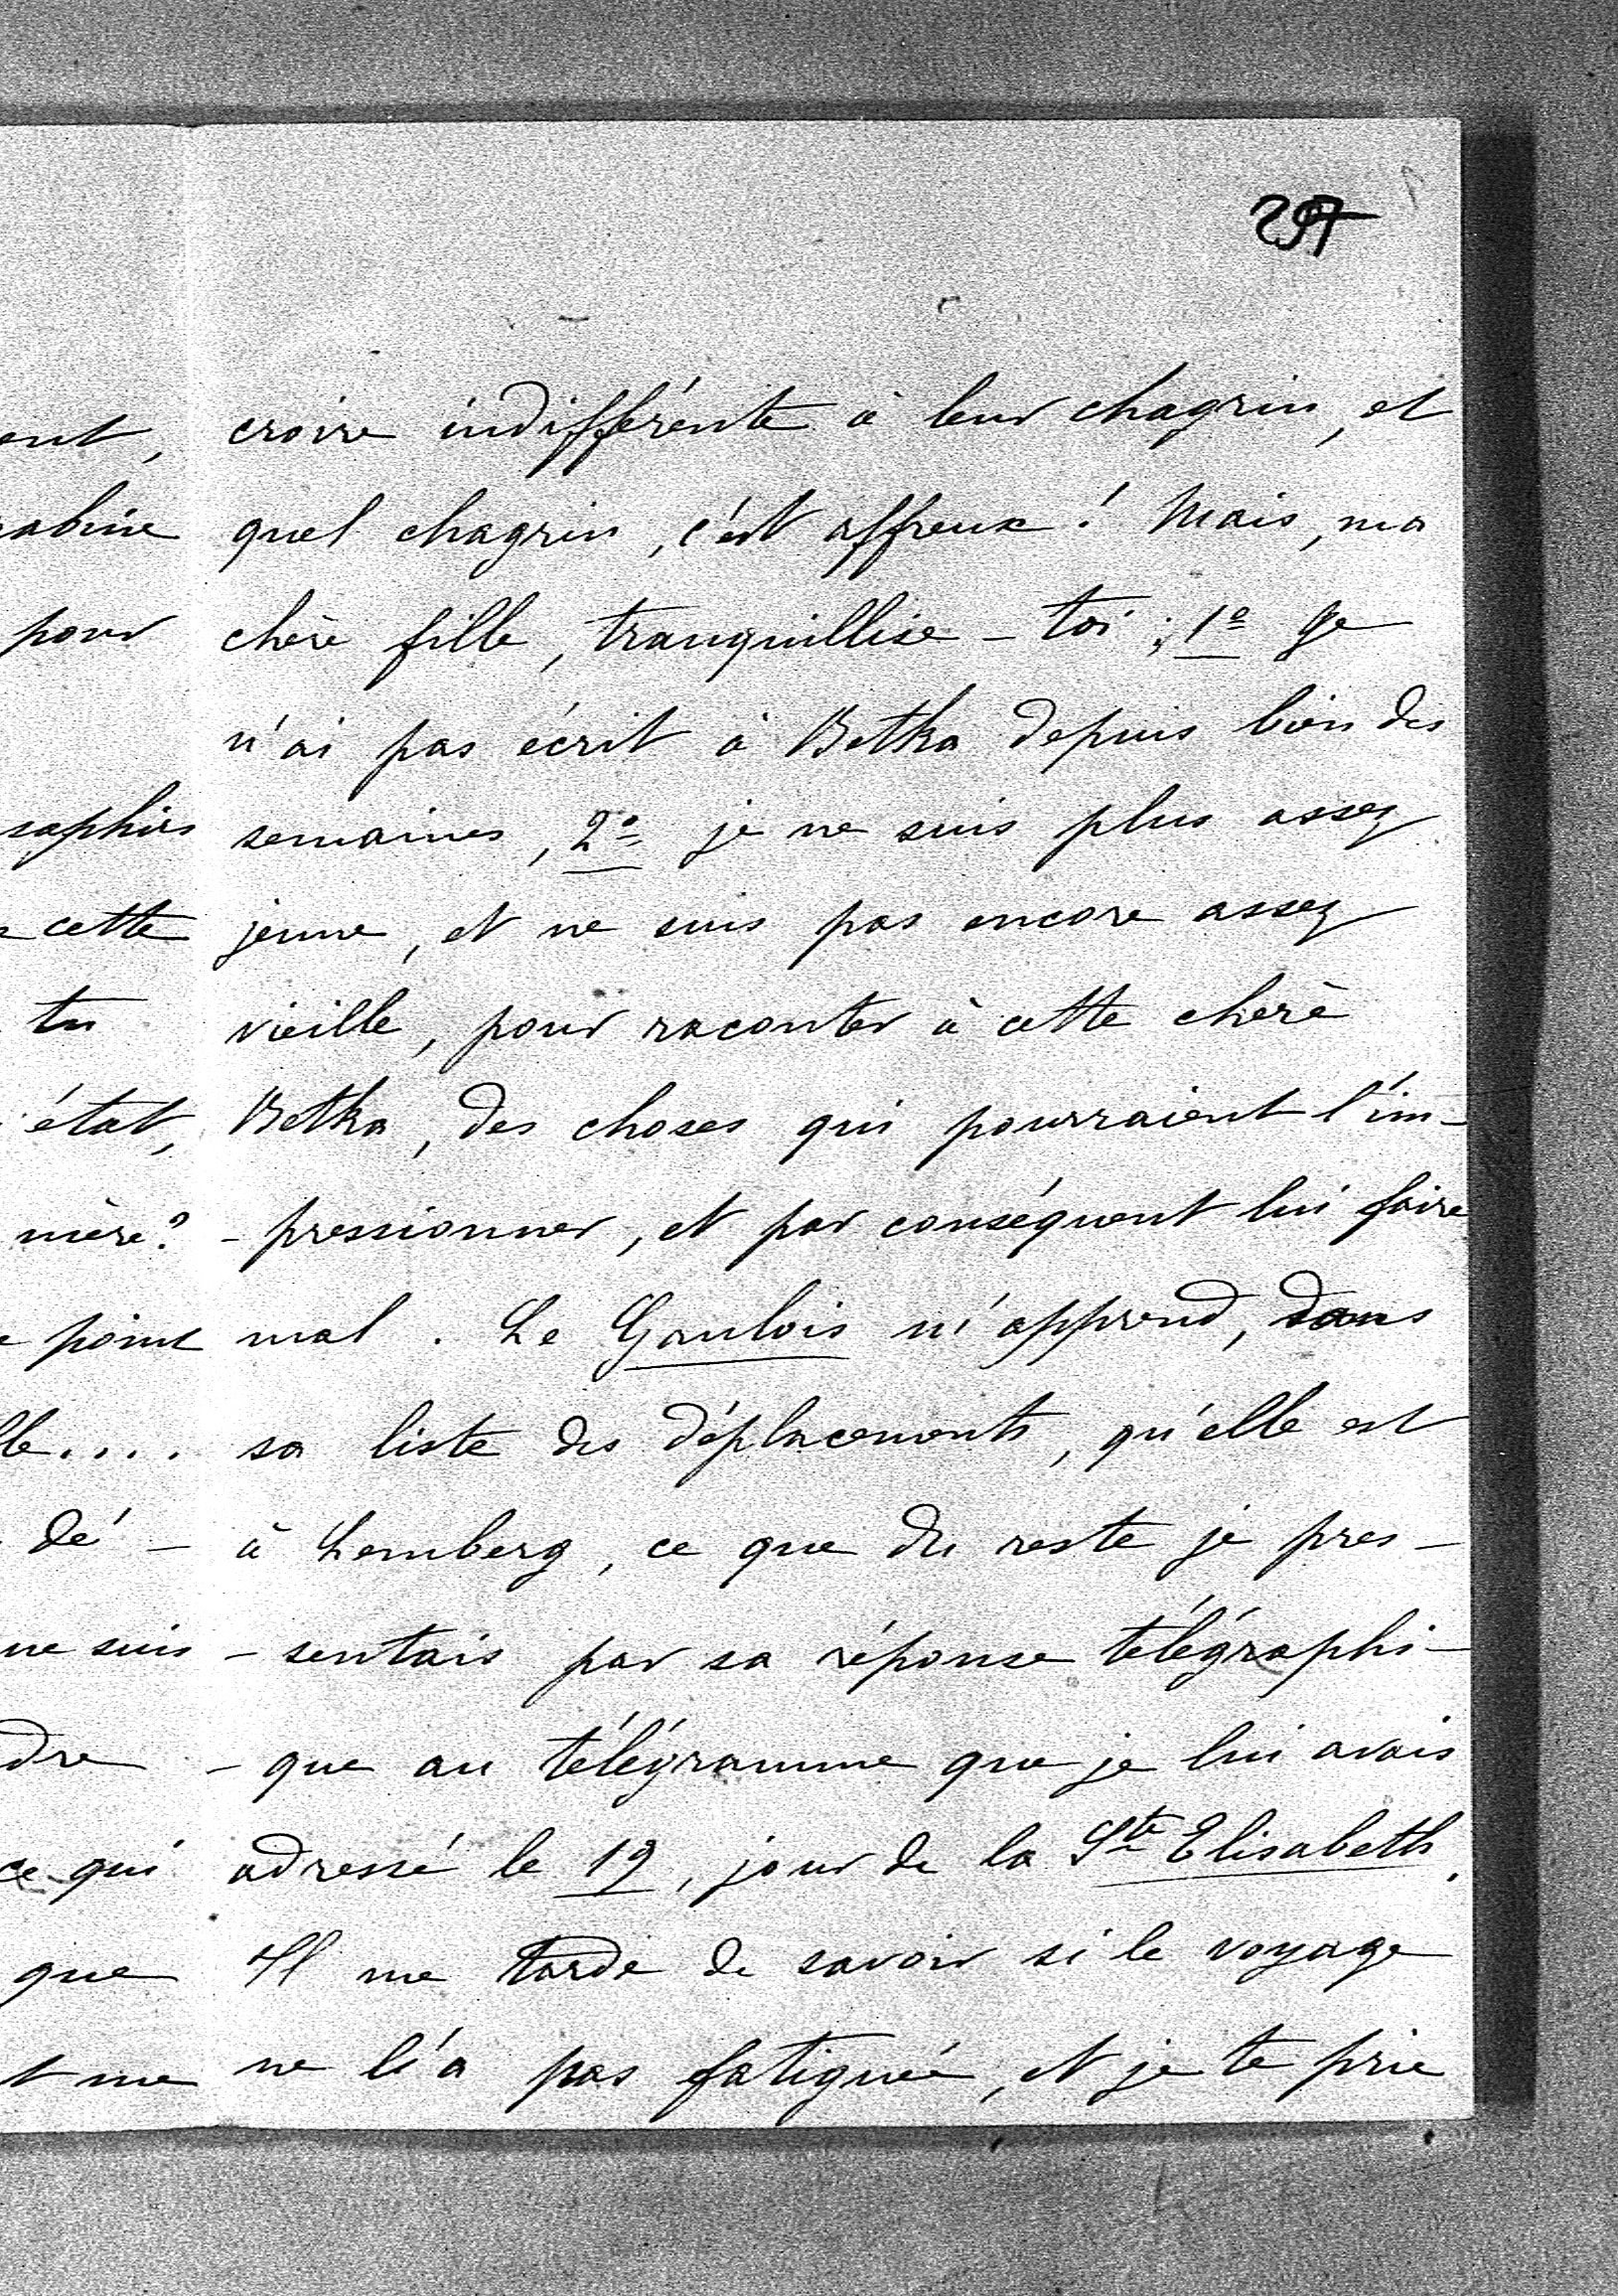 croire indifférente à leur chagrin, et
quel chagrin, c'est affreux ! Mais, ma
chère fille, tranquillise-toi ; 1º Je
n'ai pas écrit à Betka depuis bien des
semaines, 2º je ne suis plus assez
jeune, et ne suis pas encore assez
vieille, pour raconter à cette chère
Betka, des choses qui pourraient l'im-
-pressionner, et par conséquent lui faire
mal. Le Gaulois m'apprend, dans
sa liste des déplacements, qu'elle est
à Lemberg, ce que du reste je pres-
-sentais par sa réponse télégraphi-
-que au télégramme que je lui avais
adressé le 19, jour de la Ste Elisabeth.
Il me tarde de savoir si le voyage
ne l'a pas fatiguée, et je te prie
pour
saphirs
cette
tu
état,
mère?
dé-
ne suis
ce qui
que
me